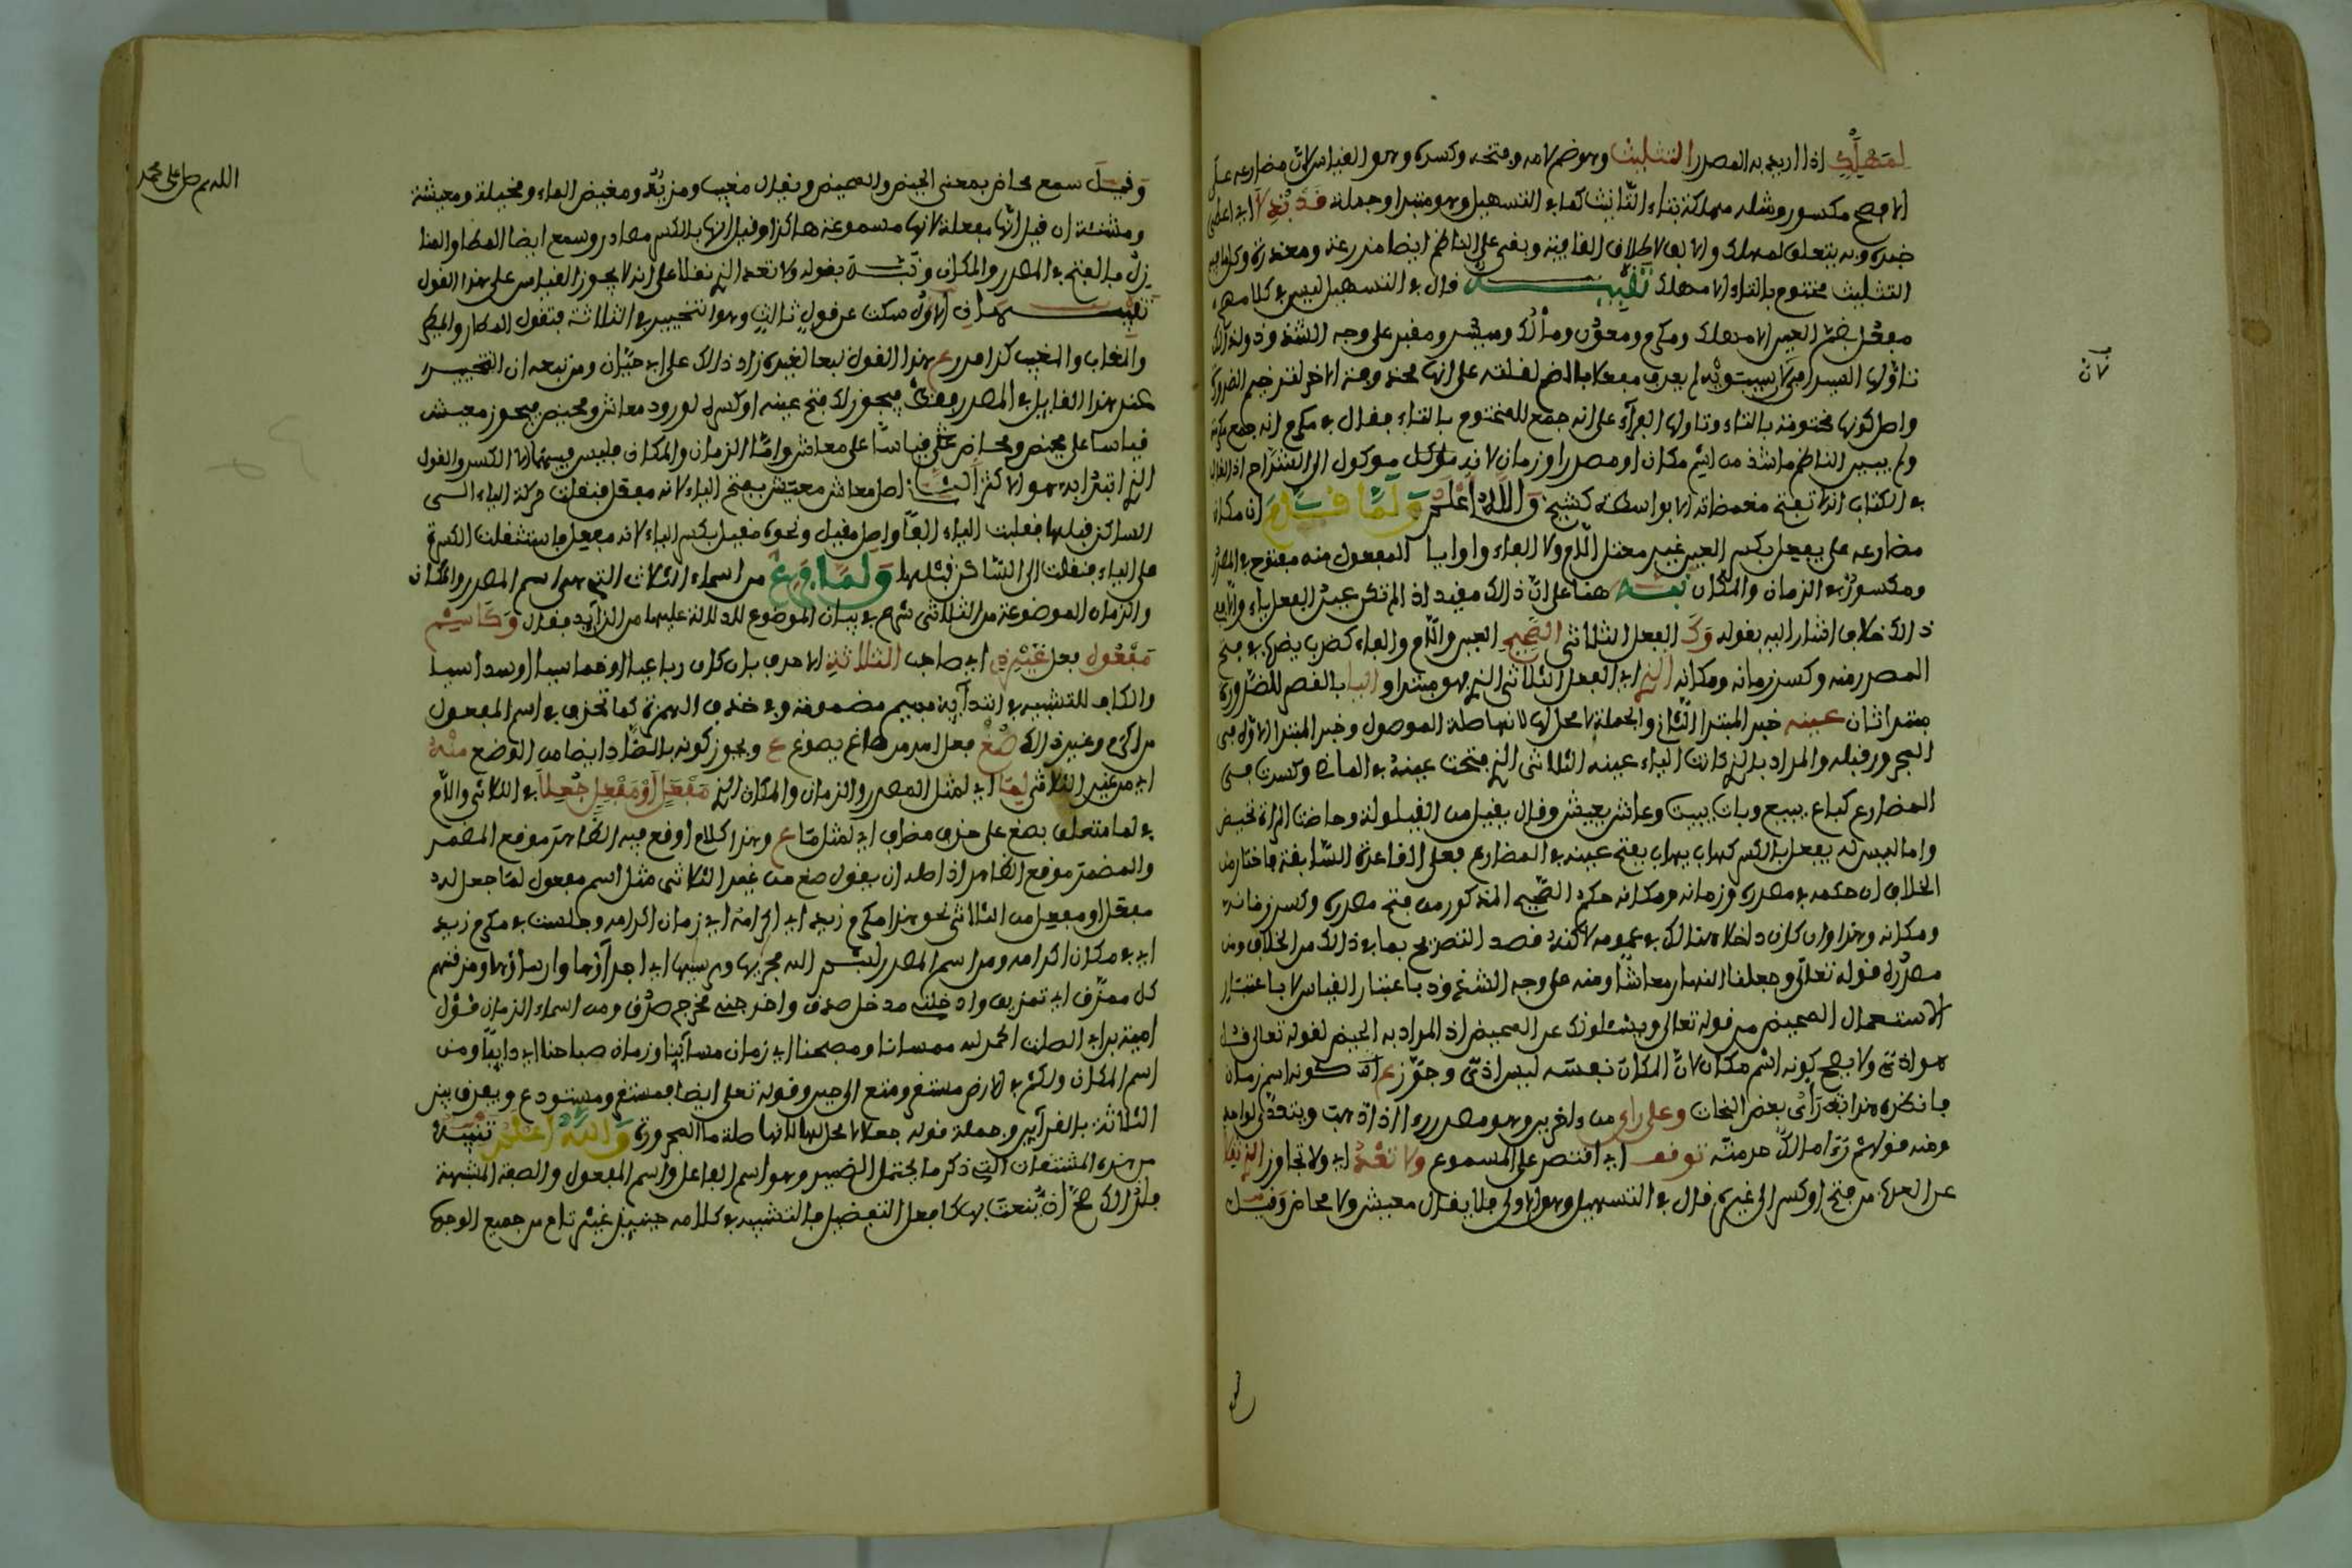 لمهلك اذا اريد به المصدر التثليث وهو ضم لامه وفتحه وكسره وهو القياس لان مضارعه على
الافصح مكسور ومثله مهلكة بتاء التانيث كما في التسهيل وهو مبتدا وجملة قد بذلا اي اعطي
خبره وبه يتعلق لمهلك والالف لاطلاق القافية وبقي على الناظم ايضا مزرعة ومعذرة وكلها
التثليث مختوم بالتاء الا مهلك تنبيه قال في التسهيل ليس في كلامهم
مفعل بضم العين الا مهلك ومكرم ومعون ومألك وميسر ومقبر على وجه الشذوذ
واصل كونها مختومة بالتاء وتاولها الفراء على انه جمع للمختوم بالتاء فقال في مكرم انه جمع مكرمة
ولم يبين الناظم ما شذ من اسم مكان او مصدر او زمان لانه موكول الى الشراح
في الكتاب انما تفتح مغمضاته الا بواسطة كشيخ والله اعلم ولما قدم ان مكان
مضارعه على يفعل بكسر العين غير معتل اللام ولا الفاء واوا يا المفعل منه مفتوح في المصدر
ومكسور في الزمان والمكان نبه هنا على ان ذلك مقيد اذا لم تكن عين الفعل ياء والا ففي
ذلك خلاف اشار اليه بقوله وك الفعل الثلاثي الصحيح العين واللام والفاء كضرب يضرب في فتح
المصدر منه وكسر زمانه ومكانه الذي اي الفعل الثلاثي الذي هو مبتدا واليا بالقصر للضرورة
مبتدا ثان عينه خبر المبتدا الثاني والجملة لا محل لها لانها صلة الموصول وخبر المبتدا الاول في
المجرور قبله والمراد بالذي كانت الياء عينه الثلاثي الذي فتحت عينه في الماضي وكسرت في
المضارع كباع يبيع وبات يبيت وعاش يعيش وقال يقيل من القيلولة وحاضت المراة تحيض
واما ليس له يفعل بالكسر كهاب يهاب بفتح عينه في المضارع فعلى القاعدة السابقة فاختار من
الخلاف ان حكمه في مصدره وزمانه ومكانه حكم الصحيح المذكور من فتح مصدره وكسر زمانه
ومكانه وهذا وان كان داخلا هنالك في عمومه لاكنه قصد التصريح بما في ذلك من الخلاف ومن
مصدره قوله تعالى وجعلنا النهار معاشا ومنه على وجه الشذوذ باعتبار القياس لا باعتبار
الاستعمال المحيض من قوله تعالى ويسئلونك عن المحيض اذ المراد به الحيض لقوله تعالى قل
هو اذى ولا يصح كونه اسم مكان لان المكان نفسه ليس اذى وجوز ع انه كونه اسم زمان
فانظره هذا رأي بعض النحات وعلى راي من اخرين وهو مصدر
ومنه قولهم توقف اي اقتصر على المسموع ولا تعد اي ولا تجاوز الذي نقلا
عن العرب من فتح او كسر الى غيره قال في التسهيل وهو الاولى فلا يقال معيش ولا محاض وقيل
وقيل سمع محاض بمعنى الحيض والمحيض ويقال مغيب ومزيد ومغيض الماء ومخيلة ومعيشة
ومشيئة ان قيل انها مفعلة لانها مسموعة هاكذا وقيل انها بالكسر مصادر وسمع ايضا المطار والمنا
زل بالفتح في المصدر والمكان ونبه بقوله ولا تعد الذي نقلا على انه لا يجوز القياس على هذا القول
تنبيهان الاول سكت عن قول ثالث وهو التخيير في الثلاثة فتقول المطار والمطير
والمغاب والمغيب كذا مررع هذا القول تبعا لغيره زاد ذلك على ابي حيان ومن تبعه ان التخيير
عند هذا القايل في المصدر فقط فيجوز لك فتح عينه او كسرها لورود معاش ومحيض فيجوز معيش
قياسا على محيض ومحاض قياسا على معاش واما الزمان والمكان فليس فيهما الا الكسر والقول
الذي ابتدا به هو الاكثر الثاني اصل معاش معيش بفتح الياء لانه مفعل فنقلت حركة الياء الى
الساكن قبلها فقلبت الياء الفا واصل مقيل ونحوه مقيل بكسر الياء لانه مفعل فاستثقلت الكسرة
على الياء فنقلت الى الساكن قبلها ولما فرغ من اسماء الثلاث التي هي اسم المصدر والمكان
والزمان الموضوعة من الثلاثي شرع في بيان الموضوع للدلالة عليها من الزايد فقال وكاسم
مفعول فعل غير ذي اي صاحب الثلاثة الاحرف بان كان رباعيا او خماسيا او سداسيا
والكاف للتشبيه في ابتدايه بميم مضمومة وفي حذف الهمزة كما تحذف في اسم المفعول
من اكرم وغير ذلك صغ فعل امر من صاغ يصوغ ع ويجوز كونه بالضاد ايضا من الوضع منه
اي من غير الثلاثي لما اي لمثل المصدر والزمان والمكان الذي مفعل او مفعل جعلا في الثلاثي واللام
في لما متعلق بصغ على حذف مضاف اي لمثل ما ع وهذا كلام اوقع فيه الظاهر موقع المضمر
والمضمر موقع الظاهر اذ اصله ان يقول صغ من غير الثلاثي مثل اسم مفعول لما جعل له
مفعل او مفعل من الثلاثي نحو هذا مكرم زيد اي اكرامه اي زمان اكرامه وجلست في مكرم زيد
اي في مكان اكرامه ومن اسم المصدر بسم الله مجراها ومرسيها اي اجراؤها وارساؤها ومزقنهم
كل ممزق اي تمزيق وادخلني مدخل صدق واخرجني مخرج صدق ومن اسماء الزمان قول
امية بن ابي الصلت الحمد لله ممسانا ومصبحنا اي زمان مسائنا وزمان صباحنا اي دايما ومن
اسم المكان ولكم في الارض مستقر ومتع الى حين وقوله تعلى ايضا فمستقر ومستودع ويعرف بين
الثلاثة بالقراين وجملة قوله جعلا لا محل لها لانها صلة ما المجرورة والله اعلم تنبيه
من هذه المشتقات التي ذكر ما يحتمل الضمير وهو اسم الفاعل واسم المفعول والصفة المشبهة
فلذلك صح ان ينعت بها كافعل التفضيل فالتشبيه في كلامه حينيذ غير تام من جميع الوجوه
اللهم صل على محمد